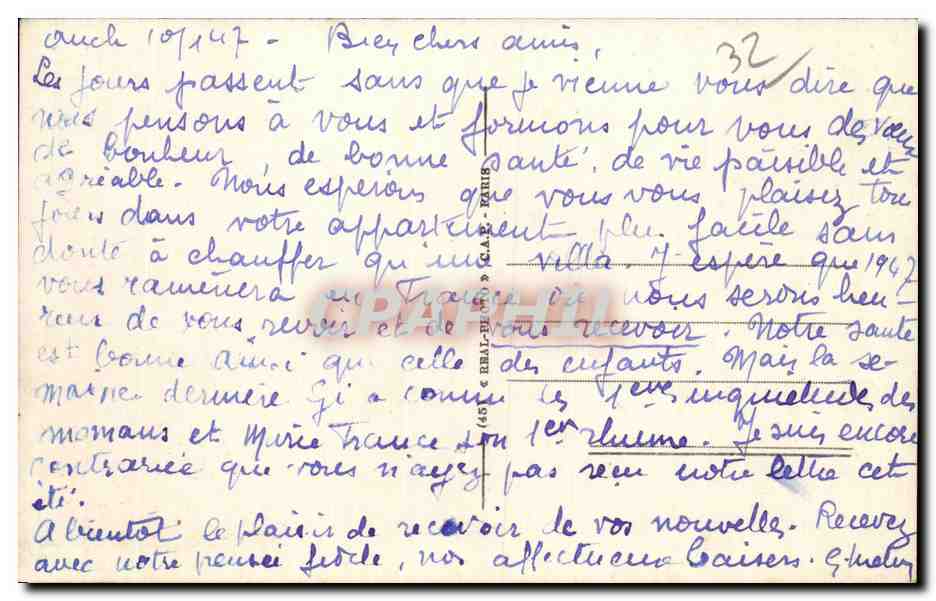 Auch 10/1 47 - Bien chers amis,
32
Les jours passent sans que je vienne vous dire que
nous pensons à vous et formons pour vous des vœux
de bonheur, de bonne santé, de vie paisible et
agréable. Nous espérons que vous vous plaisez tou
jours dans votre appartement plus facile sans
doute à chauffer qu'une villa. J'espère que 1947
vous ramènera en France où nous serons heu-
reux de vous revoir et de vous recevoir. Notre santé
est bonne ainsi que celle des enfants. Mais la se-
maine dernière Gi a connu les 1ères inquiétudes des
mamans et Marie France son 1er rhume. Je suis encore
contrariée que vous n'ayez pas reçu notre lettre cet
été.
A bientôt le plaisir de recevoir de vos nouvelles. Recevez
avec notre pensée fidèle, nos affectueux baisers.
(45) « REAL-PHOTO » C.A.P. - PARIS
CPAPHIL